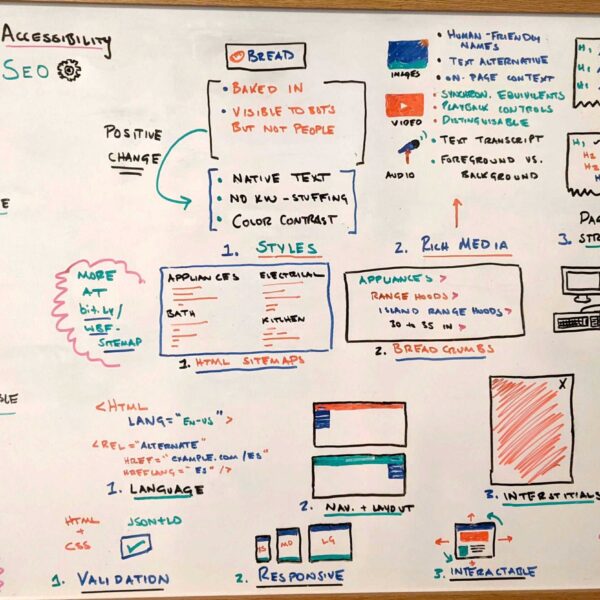 Accessibility
SEO
BREAD
• BAKED IN
• VISIBLE TO BOTS
BUT NOT PEOPLE
POSITIVE
CHANGE
• NATIVE TEXT
• NO KW-STUFFING
• COLOR CONTRAST
1. STYLES
IMAGES
• HUMAN-FRIENDLY
NAMES
• TEXT ALTERNATIVE
• ON-PAGE CONTEXT
VIDEO
• SYNCHRON. EQUIVALENTS
• PLAYBACK CONTROLS
• DISTINGUISABLE
AUDIO
• TEXT TRANSCRIPT
• FOREGROUND VS.
BACKGROUND
2. RICH MEDIA
H1
H1
H1
H1
H2
H2
H3
3.
MORE
AT
bit.ly/
WBF-
SITEMAP
APPLIANCES
ELECTRICAL
BATH
KITCHEN
1. HTML SITEMAPS
APPLIANCES >
RANGE HOODS >
ISLAND RANGE HOODS >
30 TO 35 IN >
2. BREADCRUMBS
<HTML
LANG="EN-US">
<REL="ALTERNATE"
HREF="EXAMPLE.COM/ES"
HREFLANG="ES"/>
1. LANGUAGE
2. NAV. + LAYOUT
X
3. INTERSTITIALS
HTML
+
CSS
JSON+LD
1. VALIDATION
XS
MD
LG
2. RESPONSIVE
3. INTERACTABLE